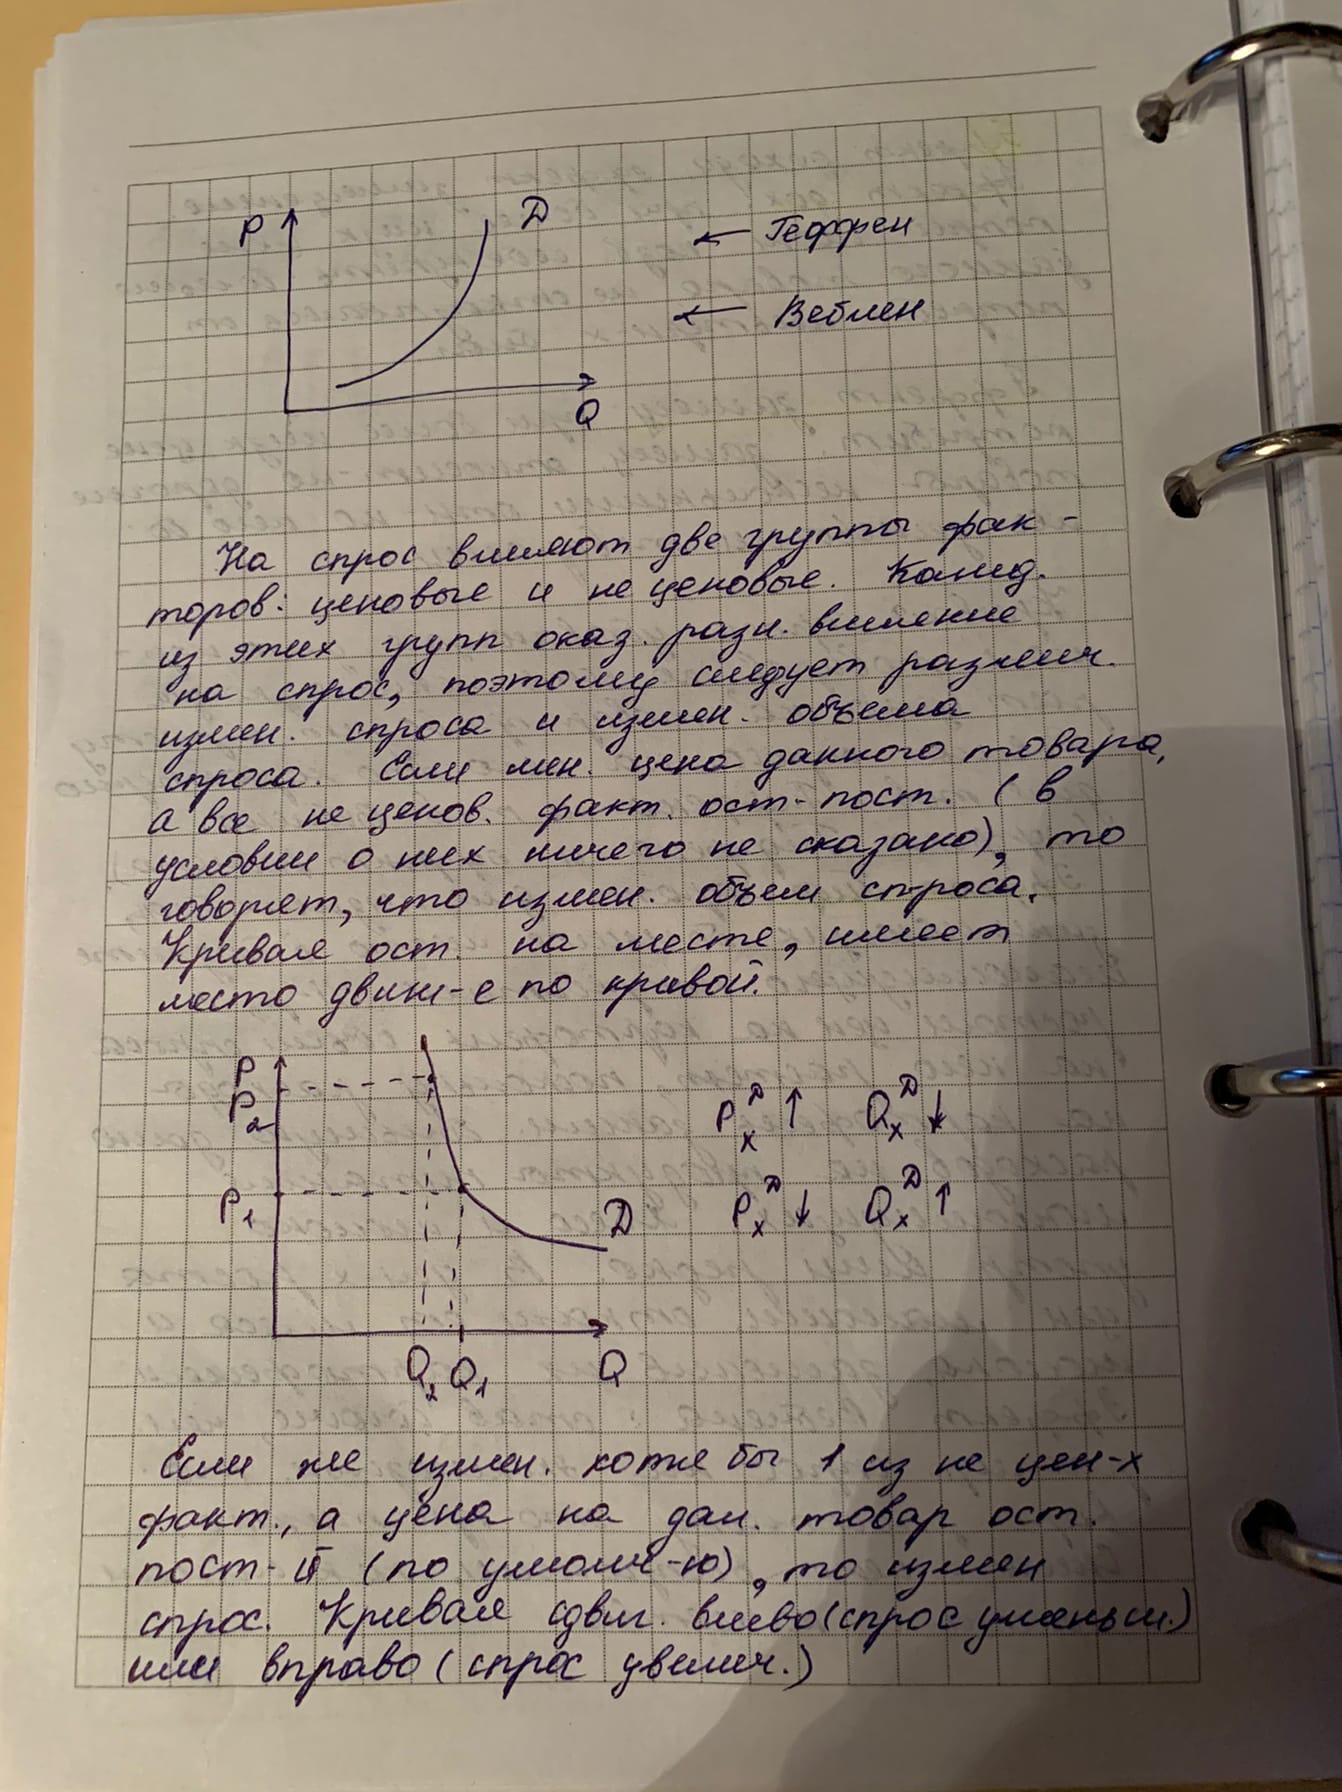 P
D
← Геффен
← Веблен
Q
На спрос влияют две группы фак-
торов: ценовые и не ценовые. Кажд.
из этих групп оказ. разн. влияние
на спрос, поэтому следует различ.
измен. спроса и измен. объема
спроса. Если мен. цена данного товара,
а все не ценов. факт. ост-пост. (в
условии о них ничего не сказано), то
говорят, что измен. объем спроса.
Кривая ост. на месте, имеет
место движ-е по кривой.
P
P₂
P₁
D
Q₂ Q₁ Q
Pₓᴰ ↑ Qₓᴰ ↓
Pₓᴰ ↓ Qₓᴰ ↑
Если же измен. хотя бы 1 из не цен-х
факт., а цена на дан. товар ост.
пост-й (по умолч-ю), то измен
спрос. Кривая сдвиг. влево (спрос уменьш.)
или вправо (спрос увелич.)